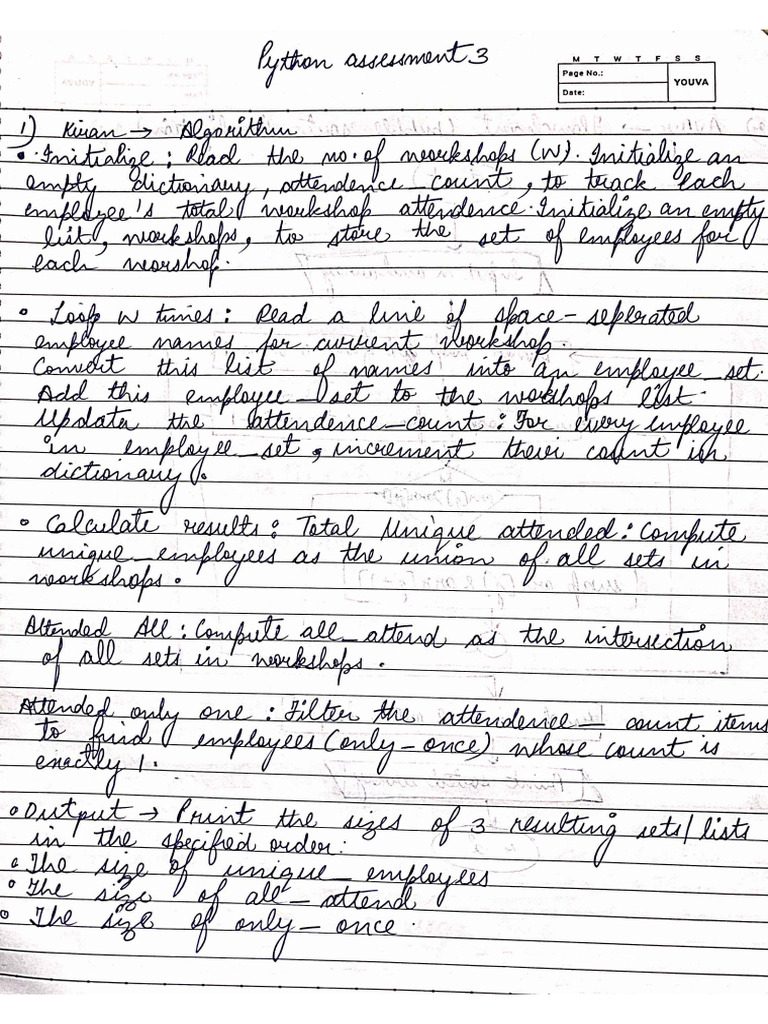 Python assessment 3
M T W T F S S
Page No.:
YOUVA
Date:
1) Kiran → Algorithm
• Initialize : Read the no. of workshops (W). Initialize an
empty dictionary, attendence_count, to track each
employee's total workshop attendence. Initialize an empty
list, workshops, to store the set of employees for
each worshop.
• Loop W times : Read a line of space-seperated
employee names for current workshop.
Convert this list of names into an employee_set.
Add this employee_set to the workshops list.
Update the attendence_count : For every employee
in employee_set, increment their count in
dictionary.
• Calculate results : Total Unique attended : Compute
unique_employees as the union of all sets in
workshops.
Attended All : Compute all_attend as the intersection
of all sets in workshops.
Attended only one : Filter the attendence_count items
to find employees (only-once) whose count is
exactly 1.
• Output → Print the sizes of 3 resulting sets/lists
in the specified order.
• The size of unique_employees
• The size of all_attend
• The size of only_once.